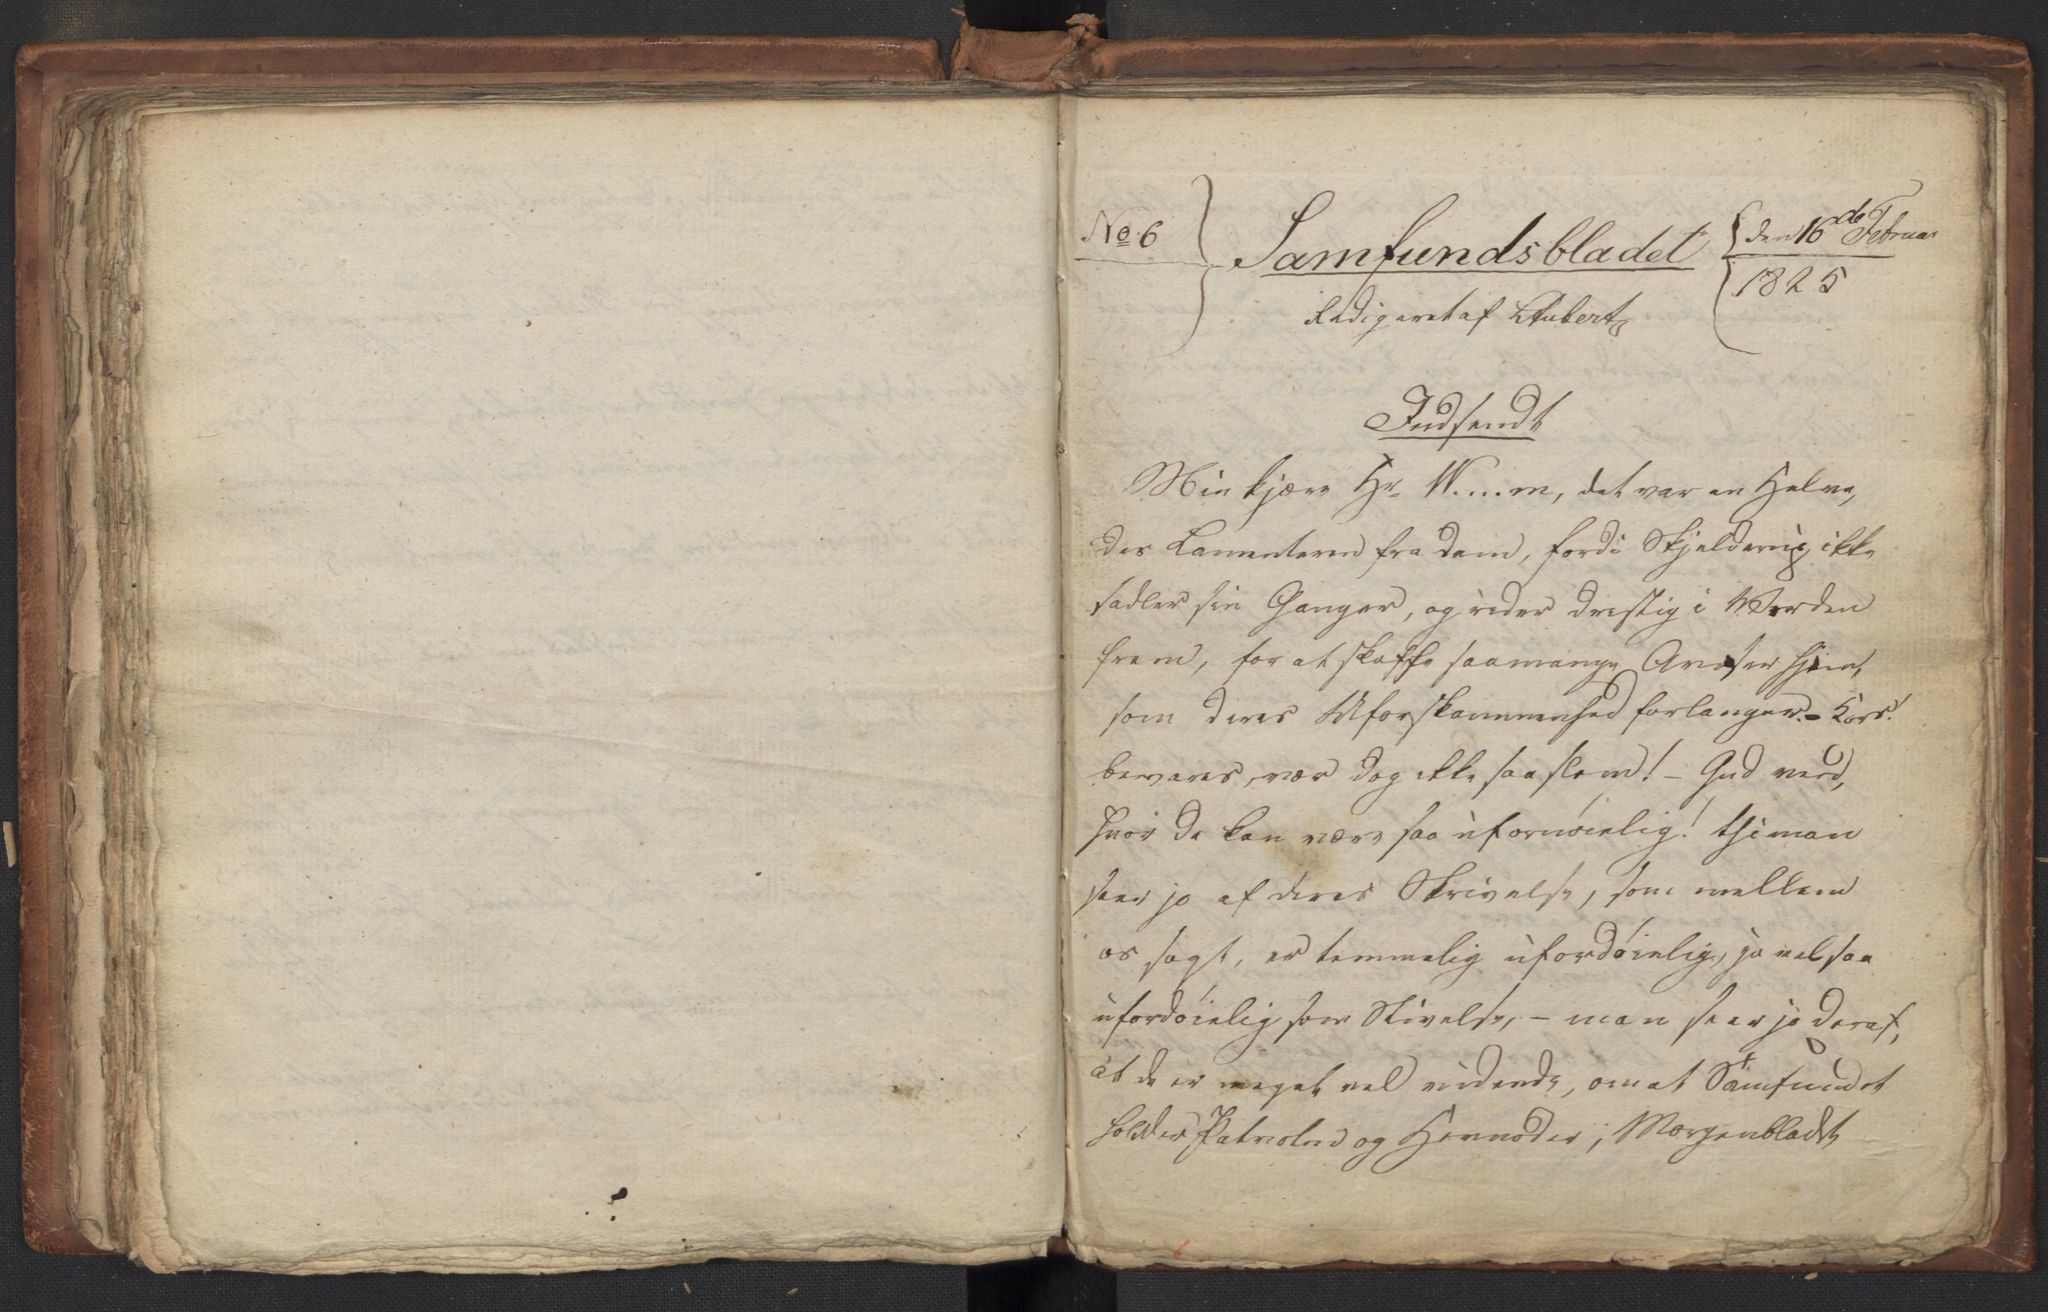 No. 6
Samfundsbladet
den 16de Februar
1825
Redigeret af Aubert
Indsendt
Min kjære Hr. W....m, det var en Helve,
des Lamenteren fra Dem, fordi Skjelderup ikke
sadler sin Ganger, og rider drestig i Verden
frem, for at skaffe saamange Aviser hjem,
som deres Uforskammenhed forlanger. - Kors!
bevares, vær dog ikke saa slem! - Gud veed,
hvor De kan være saa ufornöielig! thi man
seer jo af deres Skrivelse, som mellem
os sagt, er temmelig ufordöielig, ja vel saa
ufordöielig som Stivelse, - man seer jo deraf,
at de er meget vel vidende, om at Samfundet
holder Patrioten og Hermoder, Morgenbladet